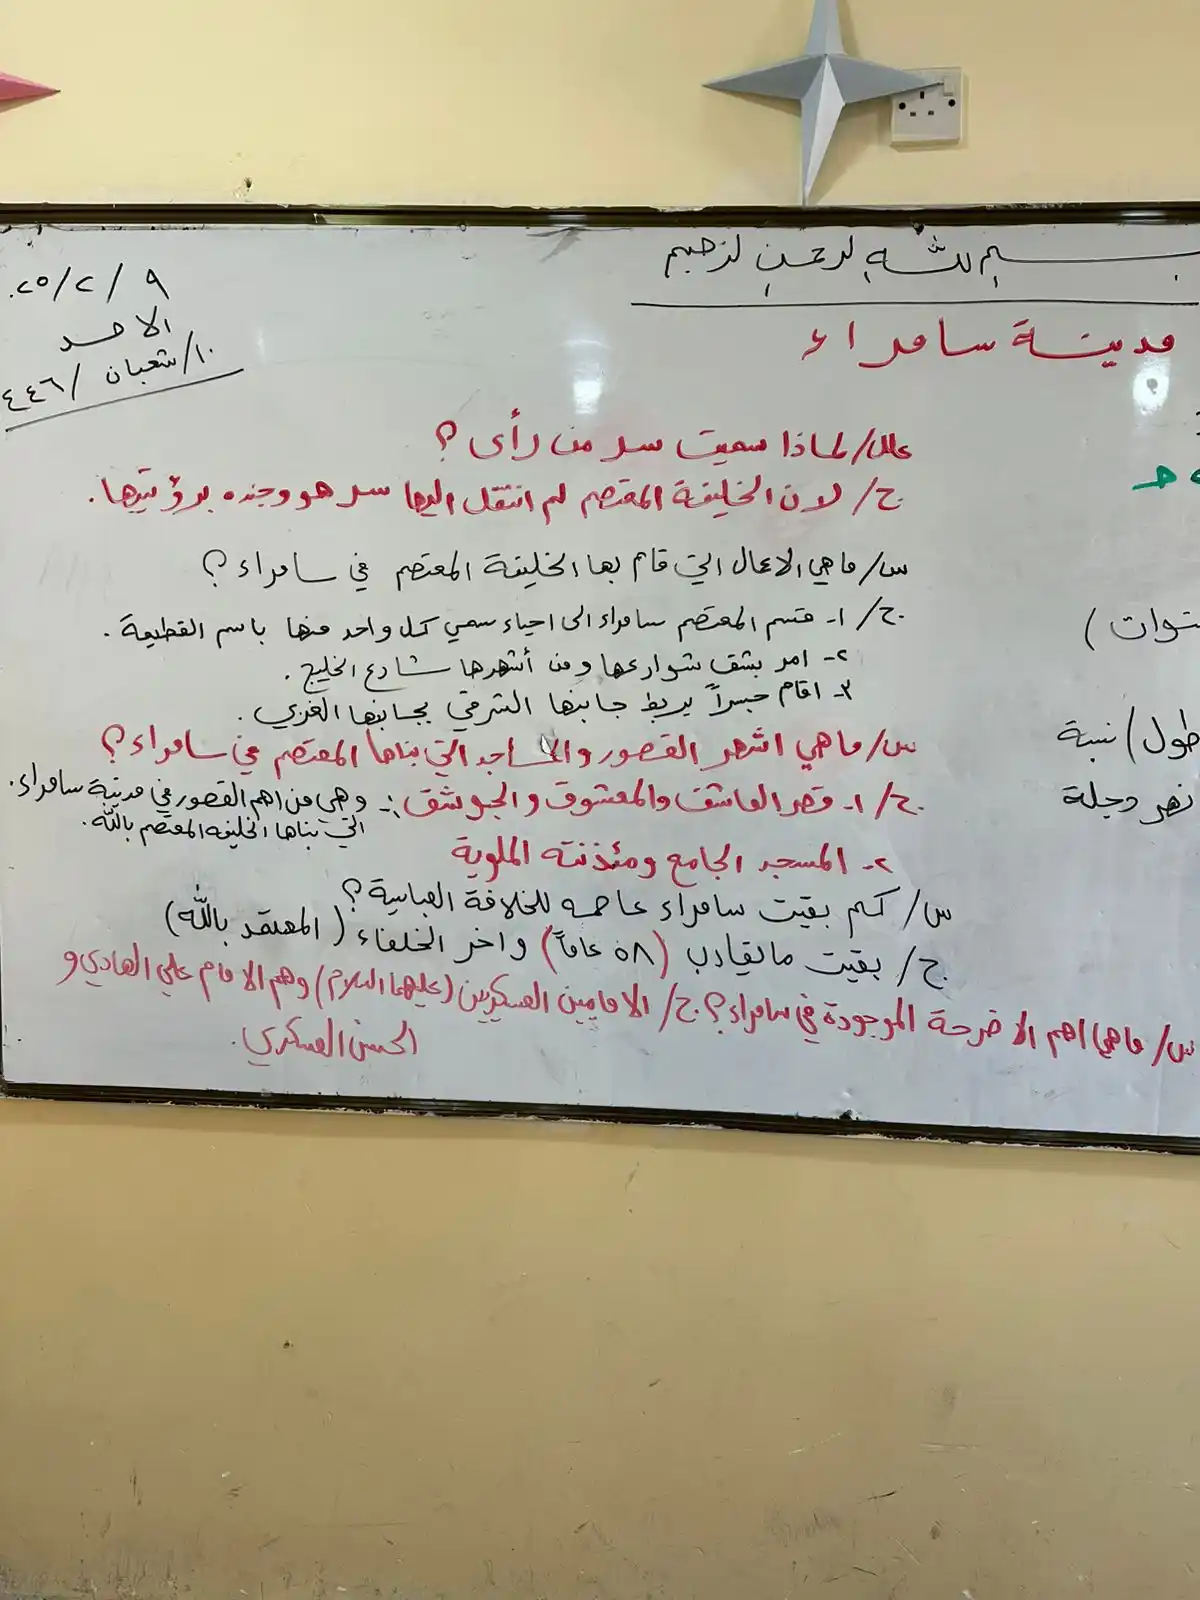 بسم الله الرحمن الرحيم
٩ / ٢ / ٢٥.
الاحد
١٠/ شعبان / ٤٤٦
مدينة سامراء
علل/ لماذا سميت سر من رأى ؟
ج/ لان الخليفة المعتصم لم انتقل اليها سر هو وجنده برؤيتها.
س/ ماهي الاعمال التي قام بها الخليفة المعتصم في سامراء ؟
ج/ ١- قسم المعتصم سامراء الى احياء سمي كل واحد منها باسم القطيعة .
٢- امر بشق شوارعها ومن أشهرها شارع الخليج .
٣- اقام جسراً يربط جانبها الشرقي بجانبها الغربي .
س/ ماهي اشهر القصور والمساجد التي بناها المعتصم في سامراء ؟
ج/ ١- قصر العاشق والمعشوق والجوشق :- وهي من اهم القصور في مدينة سامراء .
التي بناها الخليفه المعتصم بالله .
٢- المسجد الجامع ومئذنته الملوية
س/ كم بقيت سامراء عاصمه للخلافة العباسية ؟
ج/ بقيت مايقارب (٥٨ عاماً) واخر الخلفاء (المعتمد بالله)
س/ ماهي اهم الاضرحة الموجودة في سامراء ؟ ج/ الامامين العسكريين (عليهما السلام) وهم الامام علي الهادي و
الحسن العسكري .
توات )
طول / نسبة
نهر دجلة